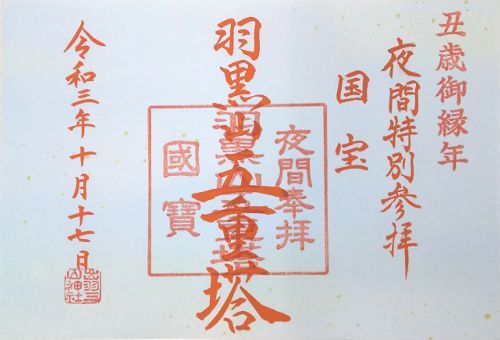 丑歳御縁年
夜間特別参拝
国宝
羽黒山五重塔
夜間奉拝
羽黒山五重塔
國寶
令和三年十月十七日
出羽三山神社